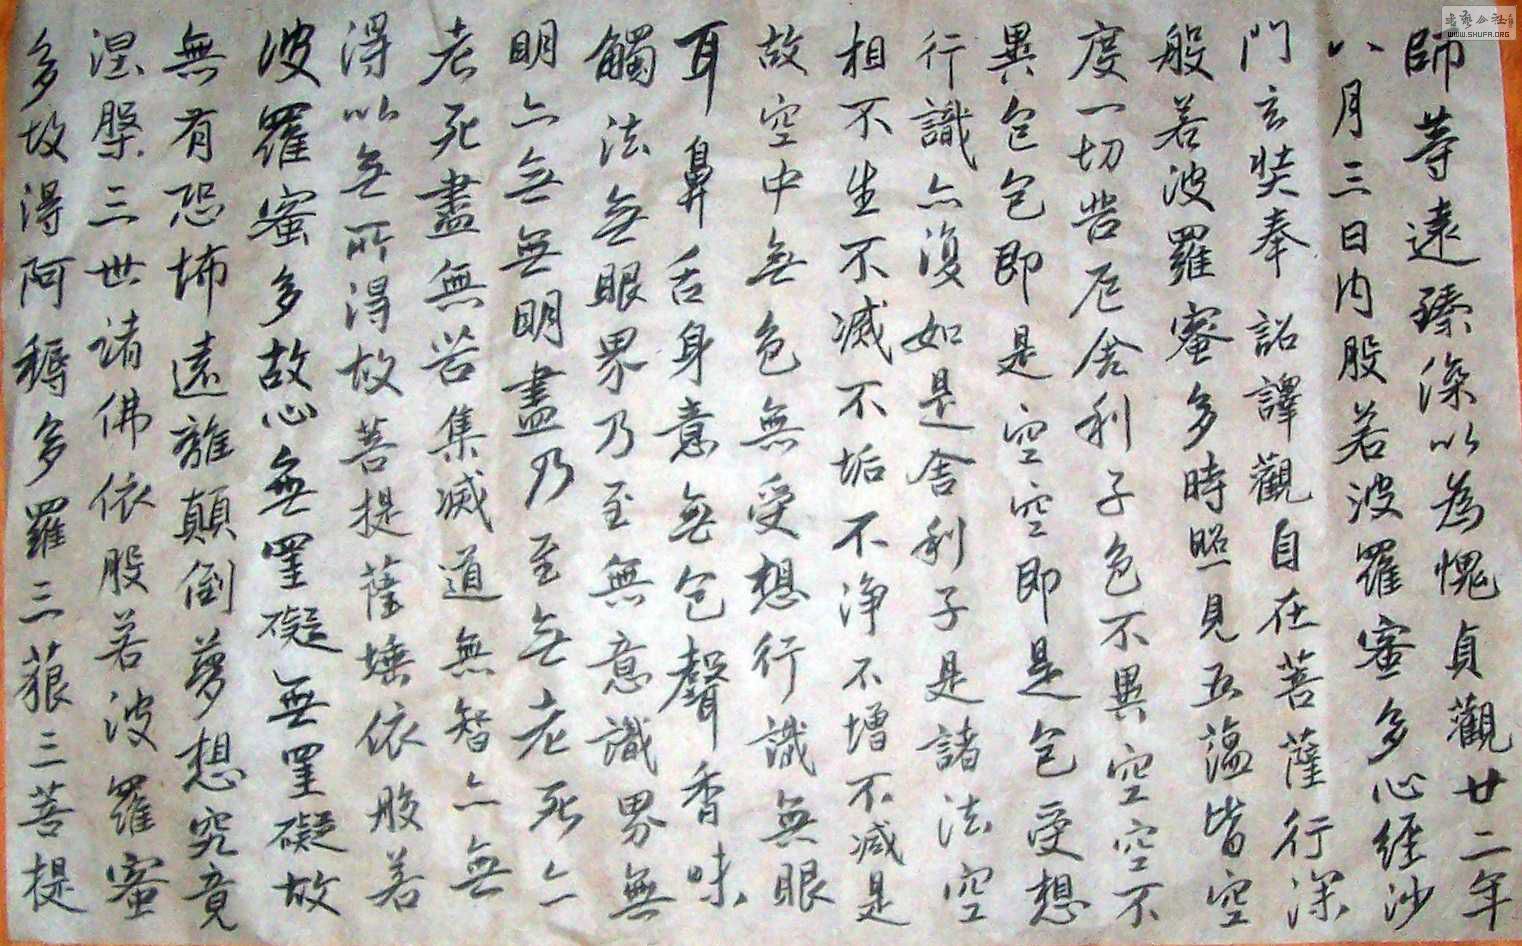 師等遠臻深以為愧貞觀廿二年
八月三日內般若波羅蜜多心經沙
門玄奘奉詔譯觀自在菩薩行深
般若波羅蜜多時照見五蕴皆空
度一切苦厄舍利子色不異空空不
異色色即是空空即是色受想
行識亦復如是舍利子是諸法空
相不生不滅不垢不淨不增不減是
故空中無色無受想行識無眼
耳鼻舌身意無色聲香味
觸法無眼界乃至無意識界無
無明亦無無明盡乃至無老死亦
老死盡無苦集滅道無智亦無
得以無所得故菩提薩埵依般若
波羅蜜多故心無罣礙無罣礙故
無有恐怖遠離顛倒夢想究竟
涅槃三世諸佛依般若波羅蜜
多故得阿耨多羅三藐三菩提
書艺公社
WWW.SHUFA.ORG